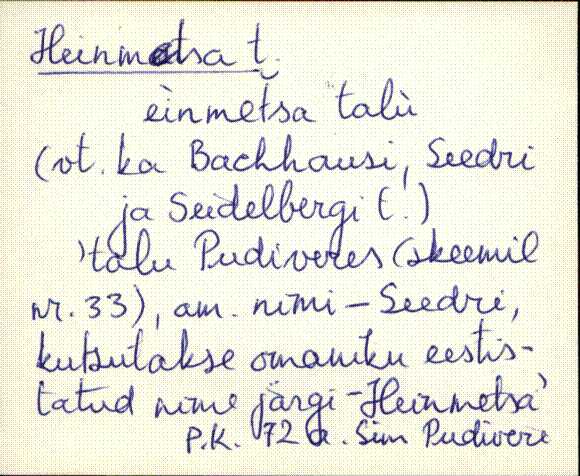 Heinmetsa t.
èinmetsa talù
(vt. ka Bachhausi, Seedri
ja Seidelbergi t.)
talu Pudiveres (skeemil
nr. 33), am. nimi - Seedri,
kutsutakse omaniku eestis-
tatud nime järgi - Heinmetsa
P.K. 72 a. Sim Pudivere